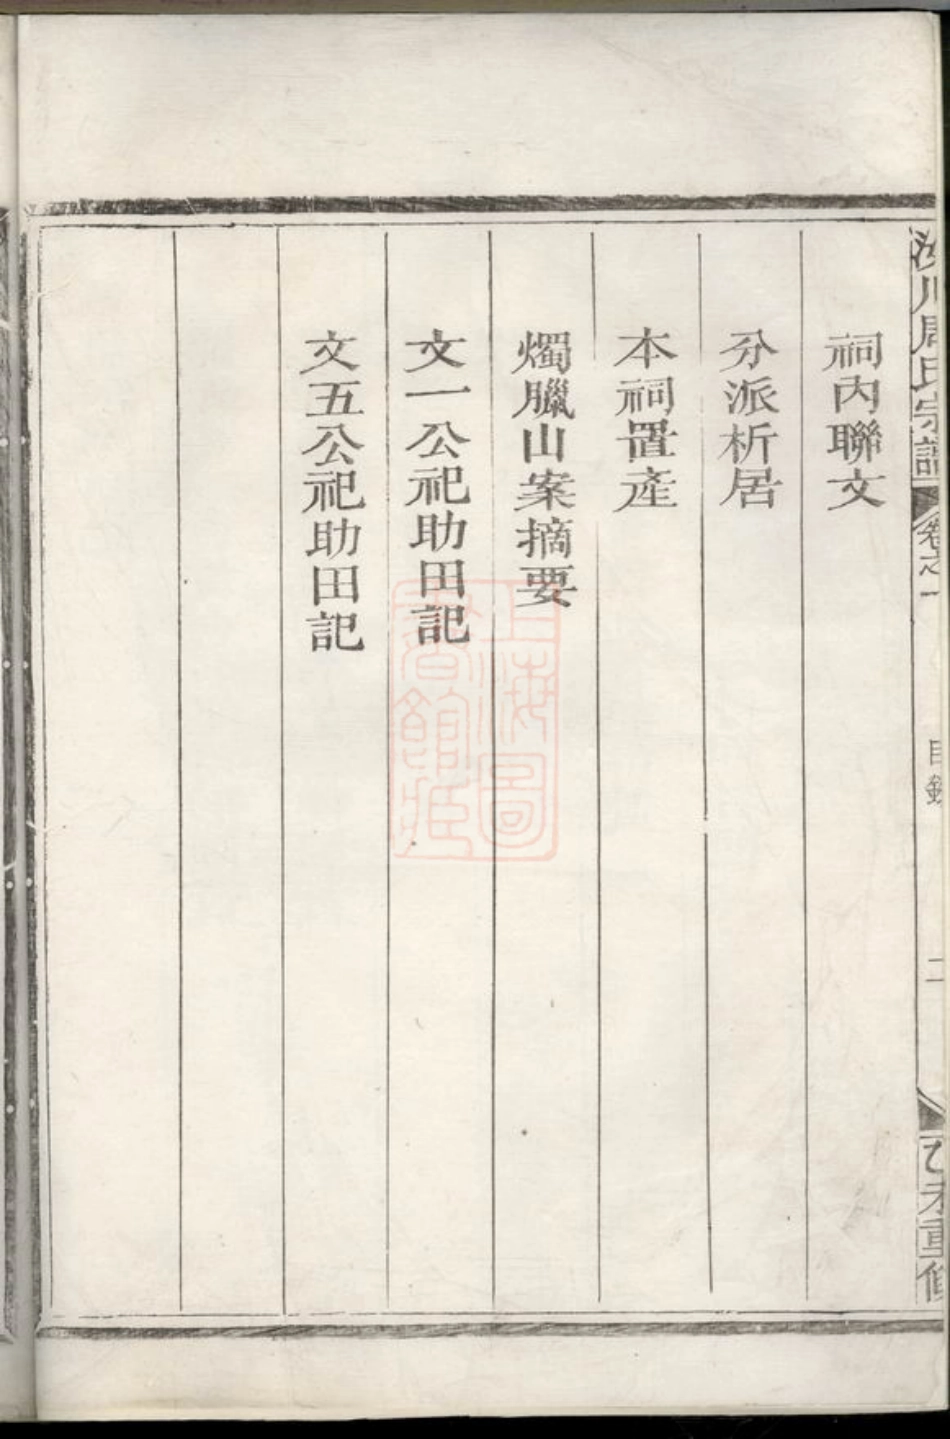 川周氏宗譜
卷之一
目錄
二
乙未重修
祠內聯文
分派析居
本祠置產
燭臘山案摘要
文一公祀助田記
文五公祀助田記
上海圖
書館藏